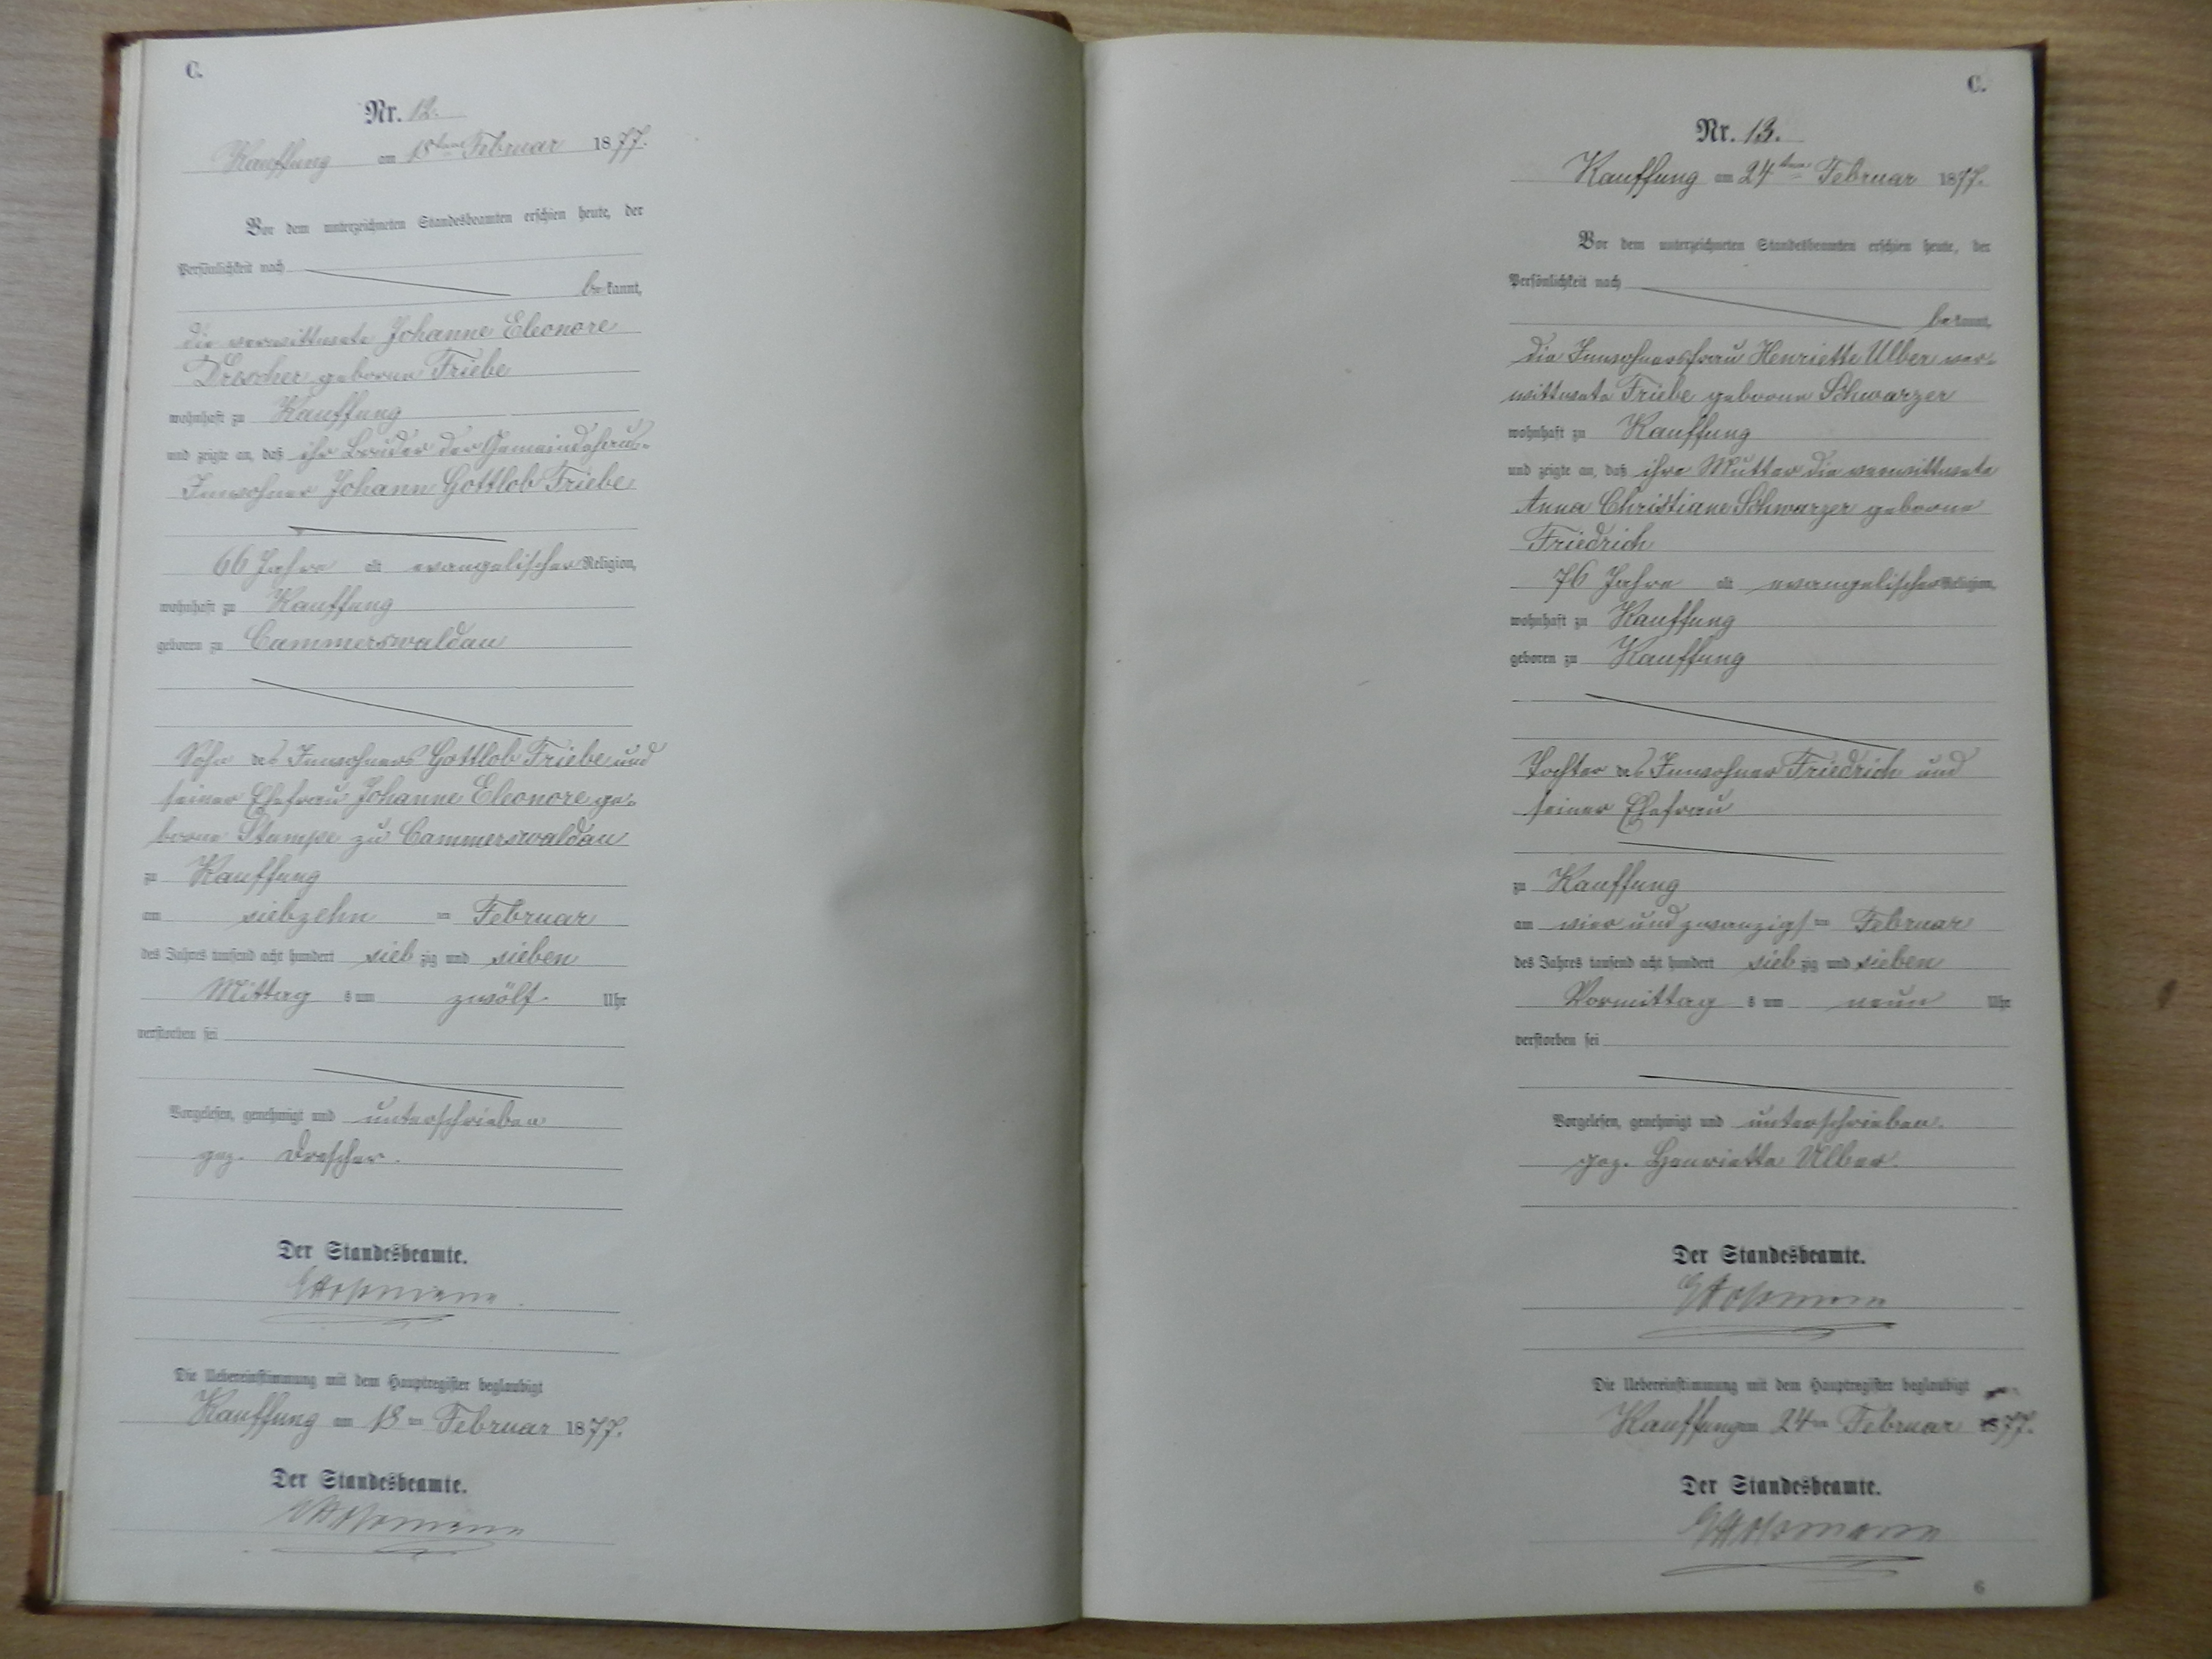 C.
Nr. 12.
Kauffung am 18ten Februar 1877.
Vor dem unterzeichneten Standesbeamten erschien heute, der
Persönlichkeit nach
bekannt,
die verwittwete Johanne Eleonore
Drescher geborne Friebe
wohnhaft zu Kauffung
und zeigte an, daß ihr Bruder der Gemeindehaus-
Inwohner Johann Gottlob Friebe
66 Jahre alt evangelischer Religion,
wohnhaft zu Kauffung
geboren zu Cammerswaldau
Sohn des Inwohners Gottlob Friebe und
seiner Ehefrau Johanne Eleonore ge-
borne Stumpe zu Cammerswaldau
zu Kauffung
am siebzehn ten Februar
des Jahres tausend acht hundert siebzig und sieben
Mittags um zwölf Uhr
verstorben sei
Vorgelesen, genehmigt und unterschrieben
gez. Drescher.
Der Standesbeamte.
Die Uebereinstimmung mit dem Hauptregister beglaubigt
Kauffung am 18ten Februar 1877.
Der Standesbeamte.
C.
Nr. 13.
Kauffung am 24ten Februar 1877.
Vor dem unterzeichneten Standesbeamten erschien heute, der
Persönlichkeit nach
bekannt,
die Inwohnersfrau Henriette Ulber ver-
wittwete Friebe geborne Schwarzer
wohnhaft zu Kauffung
und zeigte an, daß ihre Mutter die verwittwete
Anna Christiane Schwarzer geborne
Friedrich
76 Jahre alt evangelischer Religion,
wohnhaft zu Kauffung
geboren zu Kauffung
Tochter des Inwohner Friedrich und
seiner Ehefrau
zu Kauffung
am vier und zwanzigsten Februar
des Jahres tausend acht hundert siebzig und sieben
Vormittags um neun Uhr
verstorben sei
Vorgelesen, genehmigt und unterschrieben.
gez. Henriette Ulber.
Der Standesbeamte.
Die Uebereinstimmung mit dem Hauptregister beglaubigt
Kauffung am 24ten Februar 1877.
Der Standesbeamte.
6